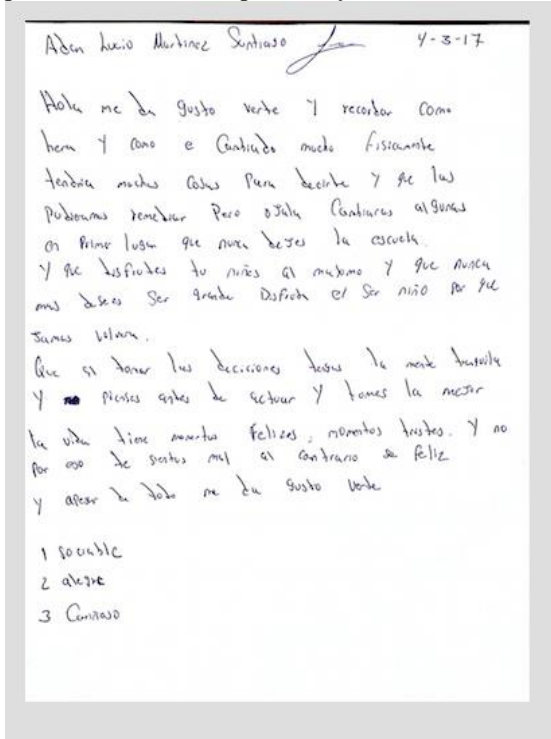 Adan Lucio Martinez Santiago 4-3-17
Hola me da gusto verte Y recordar Como
hera Y Como e Cambiado mucho Fisicamente
tendria muchas Cosas Para decirte Y que las
Pudieramos remediar Pero ojala Cambiaras algunas
en Primer lugar que nunca dejes la escuela.
Y que disfrutes tu niñes al maximo Y que nunca
mas desees Ser grande Disfruta el Ser niño por que
Jamas volvera.
Que al tomar las decisiones tengas la mente tranquila
Y pienses antes de actuar Y tomes la mejor
la vida tiene momentos Felizes, momentos tristes. Y no
por eso te sientas mal al contrario se feliz
Y apesar de todo me da gusto verte
1 sociable
2 alegre
3